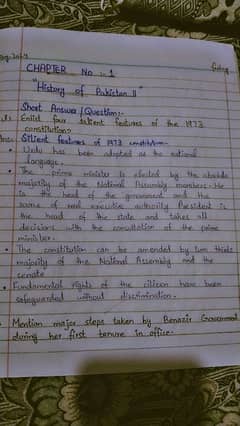 Friday
CHAPTER No :- 1
"History of Pakistan II"
Short Answer / Question:-
Enlist four salient features of the 1973
constitution?
Silient features of 1973 constitution:-
Urdu has been adopted as the national
language.
The prime minister is elected by the absolute
majority of the National Assembly members. He
head of the government and the
source of real executive authority. President is
the head of the state and takes all
decisions with the consultation of the prime
minister.
The constitution can be amended by two thirds
majority of the National Assembly and the
senate
Fundamental rights of the citizen have been
safeguarded without discrimination.
Mention major steps taken by Benazir Government
during her first tenure in office.